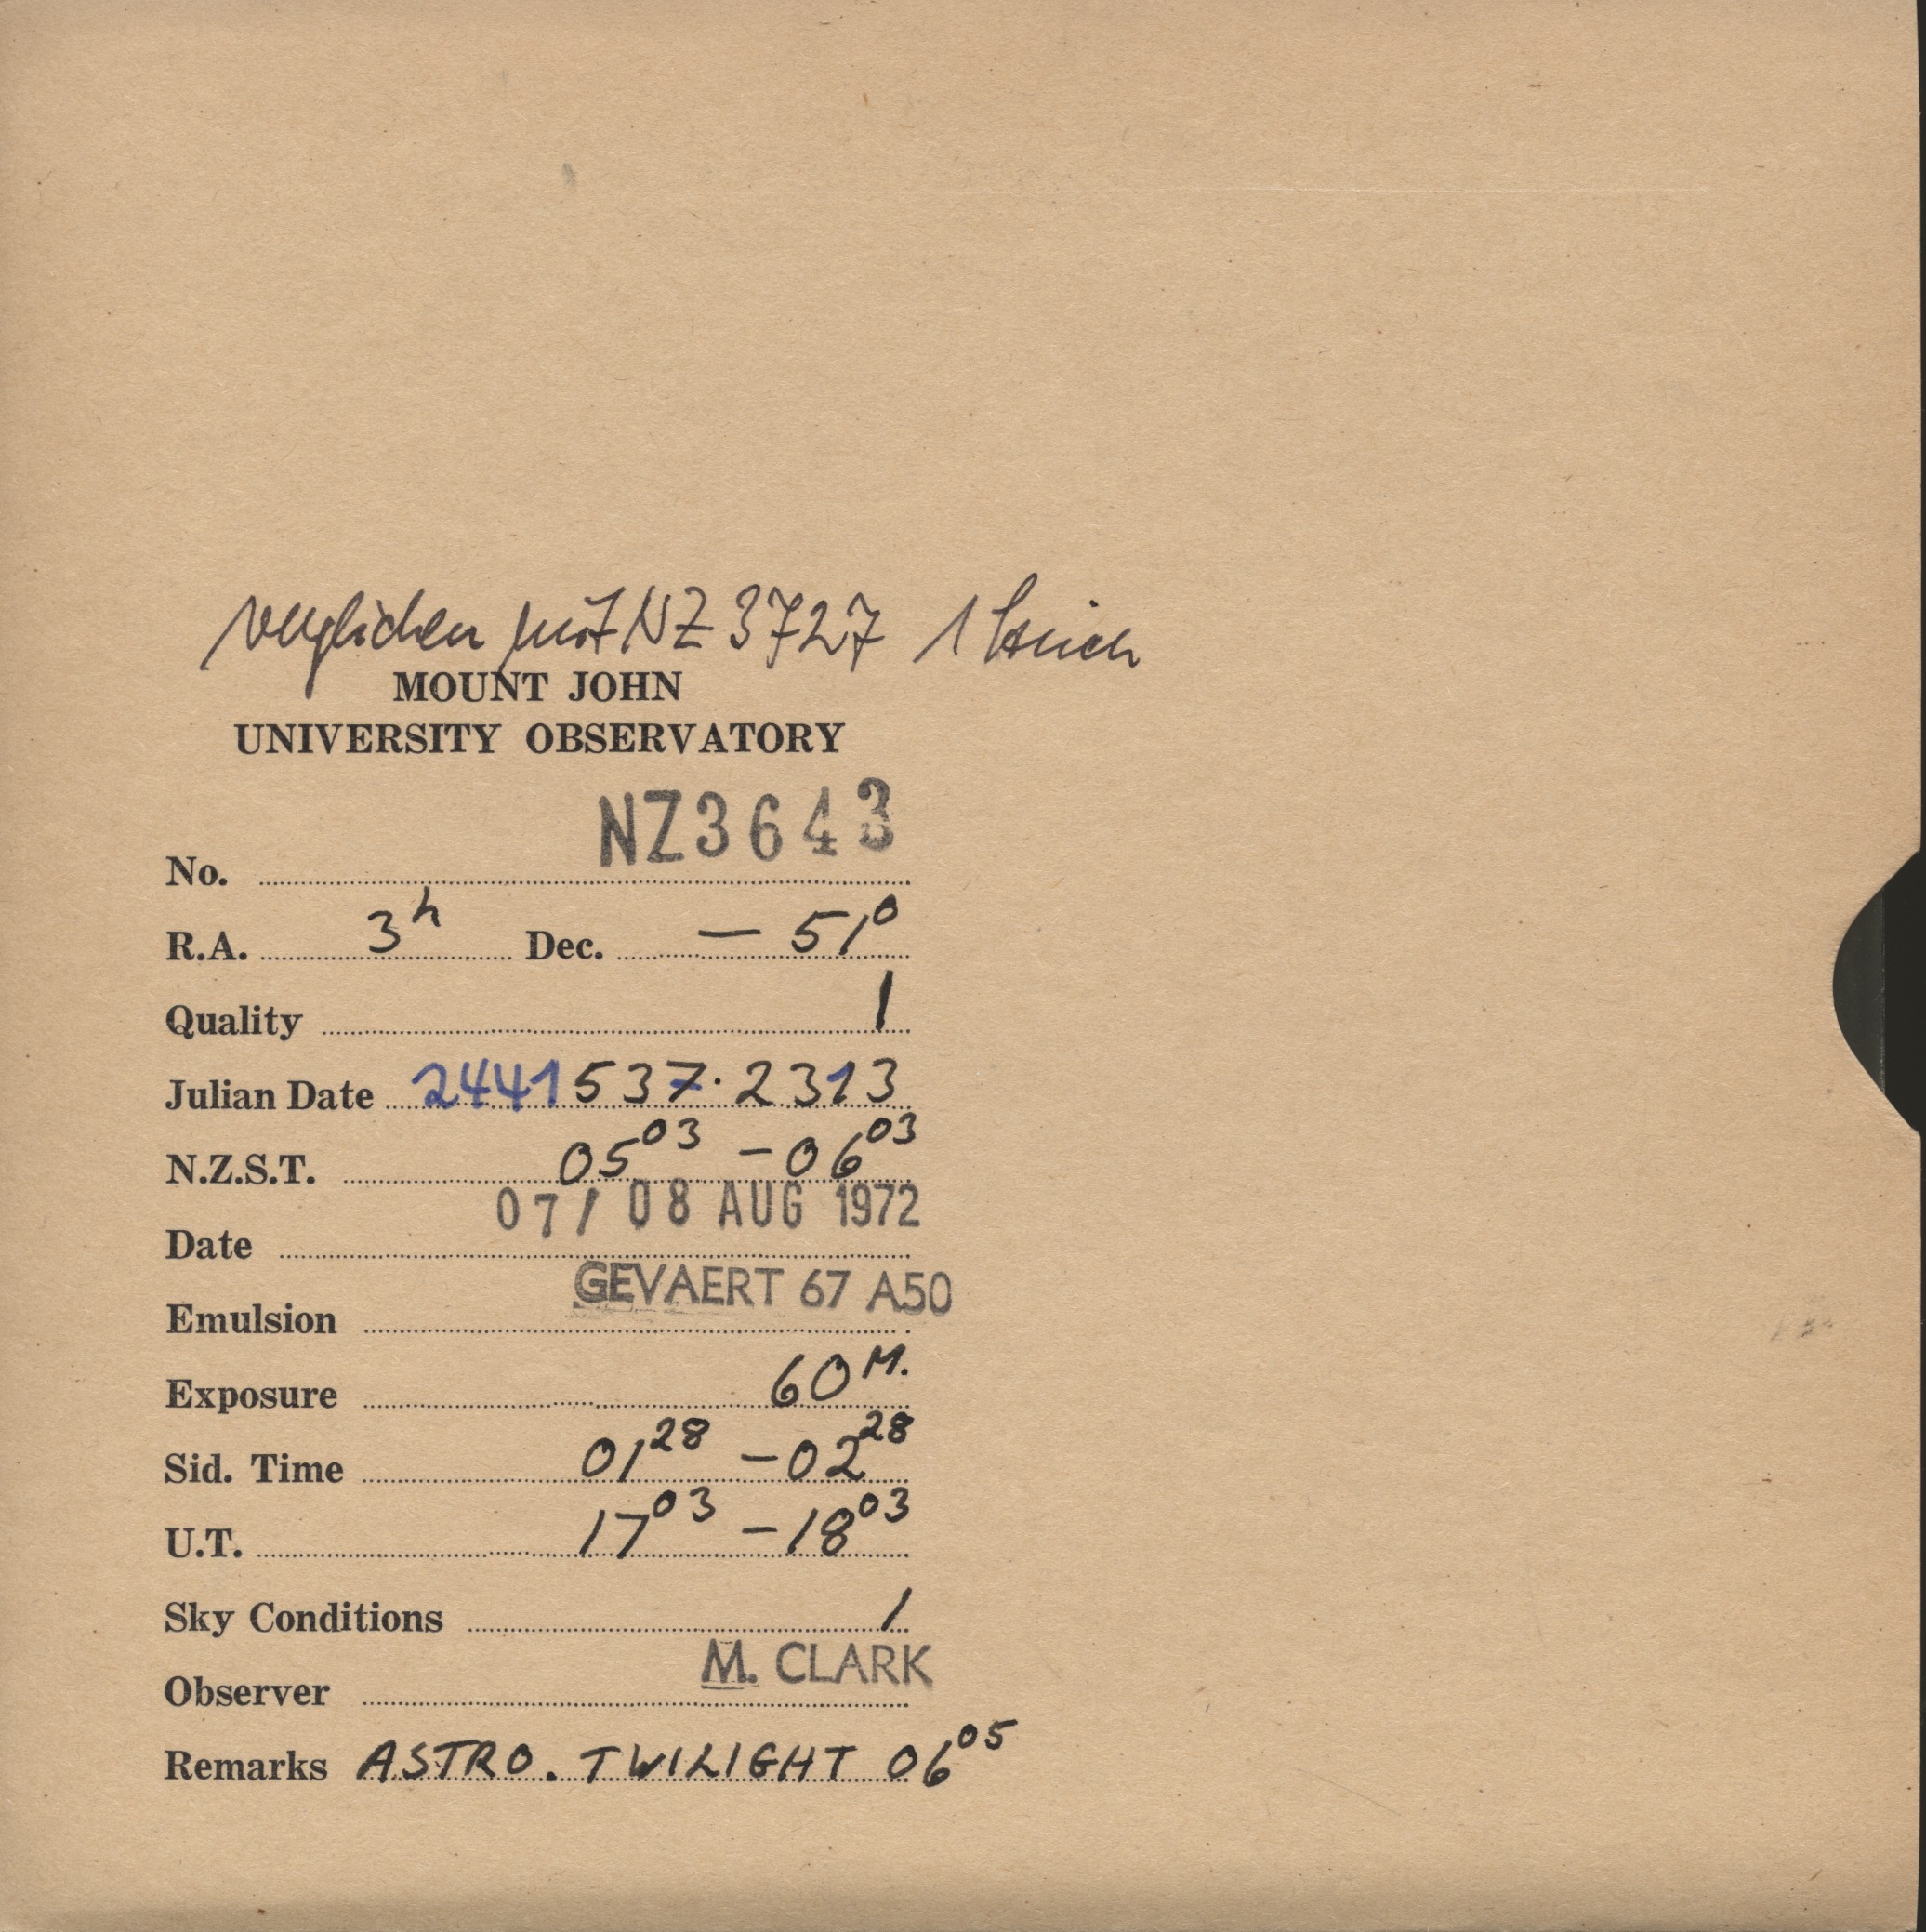 verglichen mit NZ 3727 1 Strich
MOUNT JOHN
UNIVERSITY OBSERVATORY
No. NZ3643
R.A. 3h Dec. — 51°
Quality 1
Julian Date 2441537.2313
N.Z.S.T. 05 03 – 06 03
Date 07/08 AUG 1972
Emulsion GEVAERT 67 A50
Exposure 60 M.
Sid. Time 01 28 – 02 28
U.T. 17 03 – 18 03
Sky Conditions 1
Observer M. CLARK
Remarks ASTRO. TWILIGHT 06 05